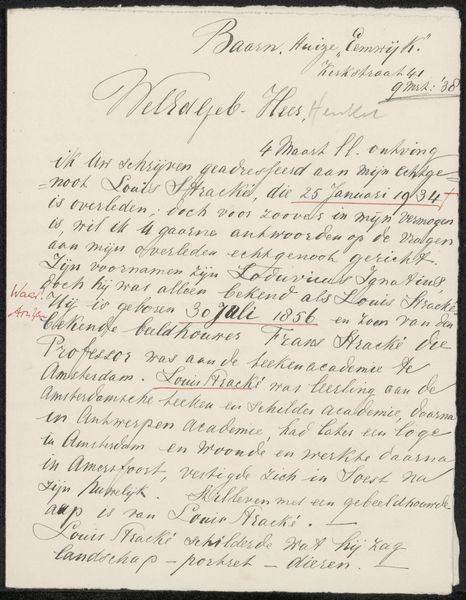 Baarn, Huize "Eemwijk"
Kerkstraat 41
9 Mrt: '38
WelEdelgeb- Heer, Henkel
4 Maart ll. ontving
ik Uw schrijven geadresseerd aan mijn echtge-
=noot Louis Stracké, die 25 Januari 1934 +
is overleden; doch voor zoover in mijn vermogen
is, wil ik U gaarne antwoorden op de vragen
aan mijn overleden echtgenoot gericht.
Zijn voornamen zijn Loduvicus Ignatius,
doch hij was alleen bekend als Louis Stracké.
Waar?
Hij is geboren 30 Juli 1856 en zoon van den
bekende beeldhouwer Frans Stracké die
Professor was aan de teekenacademie te
Amsterdam. Louis Stracké was leerling aan de
Amsterdamsche teeken en schilder academie, daarna
in Antwerpen academie, had later een loge
in Amsterdam en woonde en werkte daarna
in Amersfoort, vestigde zich in Soest na
zijn huwelijk. Stilleven met een gebeeldhouwde
aap is van Louis Stracké. —
Louis Stracké schilderde wat hij zag
landschap - portret - dieren. —